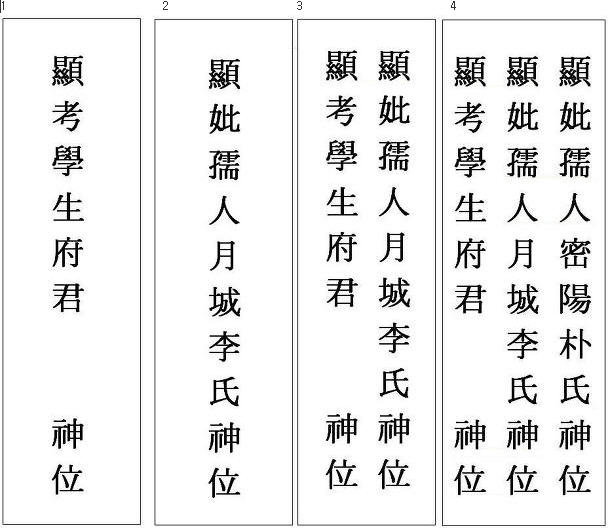 1
顯考學生府君 神位
2
顯妣孺人月城李氏神位
3
顯考學生府君 神位
顯妣孺人月城李氏神位
4
顯考學生府君 神位
顯妣孺人月城李氏神位
顯妣孺人密陽朴氏神位